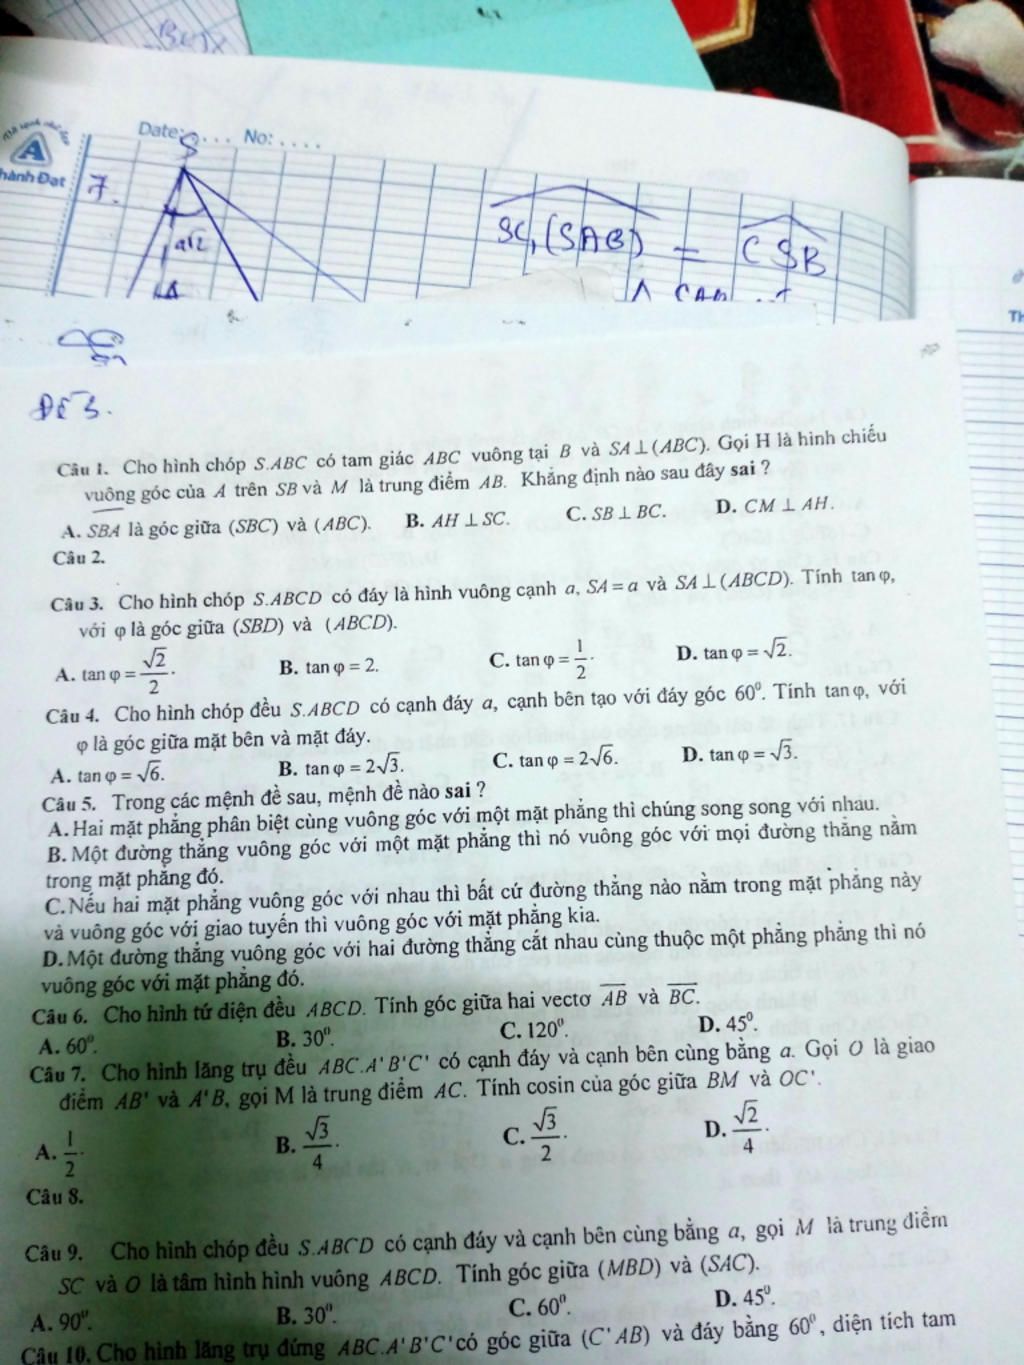 Date: . . . . No: . . . .
A
hành Đạt
7.
S
a√2
A
SC, (SAB) = CSB
Đề 3.
Câu 1. Cho hình chóp S.ABC có tam giác ABC vuông tại B và SA ⊥ (ABC). Gọi H là hình chiếu
vuông góc của A trên SB và M là trung điểm AB. Khẳng định nào sau đây sai ?
A. SBA là góc giữa (SBC) và (ABC). B. AH ⊥ SC. C. SB ⊥ BC. D. CM ⊥ AH.
Câu 2.
Câu 3. Cho hình chóp S.ABCD có đáy là hình vuông cạnh a, SA = a và SA ⊥ (ABCD). Tính tan φ,
với φ là góc giữa (SBD) và (ABCD).
A. tan φ = √2/2. B. tan φ = 2. C. tan φ = 1/2. D. tan φ = √2.
Câu 4. Cho hình chóp đều S.ABCD có cạnh đáy a, cạnh bên tạo với đáy góc 60⁰. Tính tan φ, với
φ là góc giữa mặt bên và mặt đáy.
A. tan φ = √6. B. tan φ = 2√3. C. tan φ = 2√6. D. tan φ = √3.
Câu 5. Trong các mệnh đề sau, mệnh đề nào sai ?
A. Hai mặt phẳng phân biệt cùng vuông góc với một mặt phẳng thì chúng song song với nhau.
B. Một đường thẳng vuông góc với một mặt phẳng thì nó vuông góc với mọi đường thẳng nằm
trong mặt phẳng đó.
C. Nếu hai mặt phẳng vuông góc với nhau thì bất cứ đường thẳng nào nằm trong mặt phẳng này
và vuông góc với giao tuyến thì vuông góc với mặt phẳng kia.
D. Một đường thẳng vuông góc với hai đường thẳng cắt nhau cùng thuộc một phẳng phẳng thì nó
vuông góc với mặt phẳng đó.
Câu 6. Cho hình tứ diện đều ABCD. Tính góc giữa hai vectơ AB và BC.
A. 60⁰. B. 30⁰. C. 120⁰. D. 45⁰.
Câu 7. Cho hình lăng trụ đều ABC.A'B'C' có cạnh đáy và cạnh bên cùng bằng a. Gọi O là giao
điểm AB' và A'B, gọi M là trung điểm AC. Tính cosin của góc giữa BM và OC'.
A. 1/2. B. √3/4. C. √3/2. D. √2/4.
Câu 8.
Câu 9. Cho hình chóp đều S.ABCD có cạnh đáy và cạnh bên cùng bằng a, gọi M là trung điểm
SC và O là tâm hình hình vuông ABCD. Tính góc giữa (MBD) và (SAC).
A. 90⁰. B. 30⁰. C. 60⁰. D. 45⁰.
Câu 10. Cho hình lăng trụ đứng ABC.A'B'C' có góc giữa (C'AB) và đáy bằng 60⁰, diện tích tam